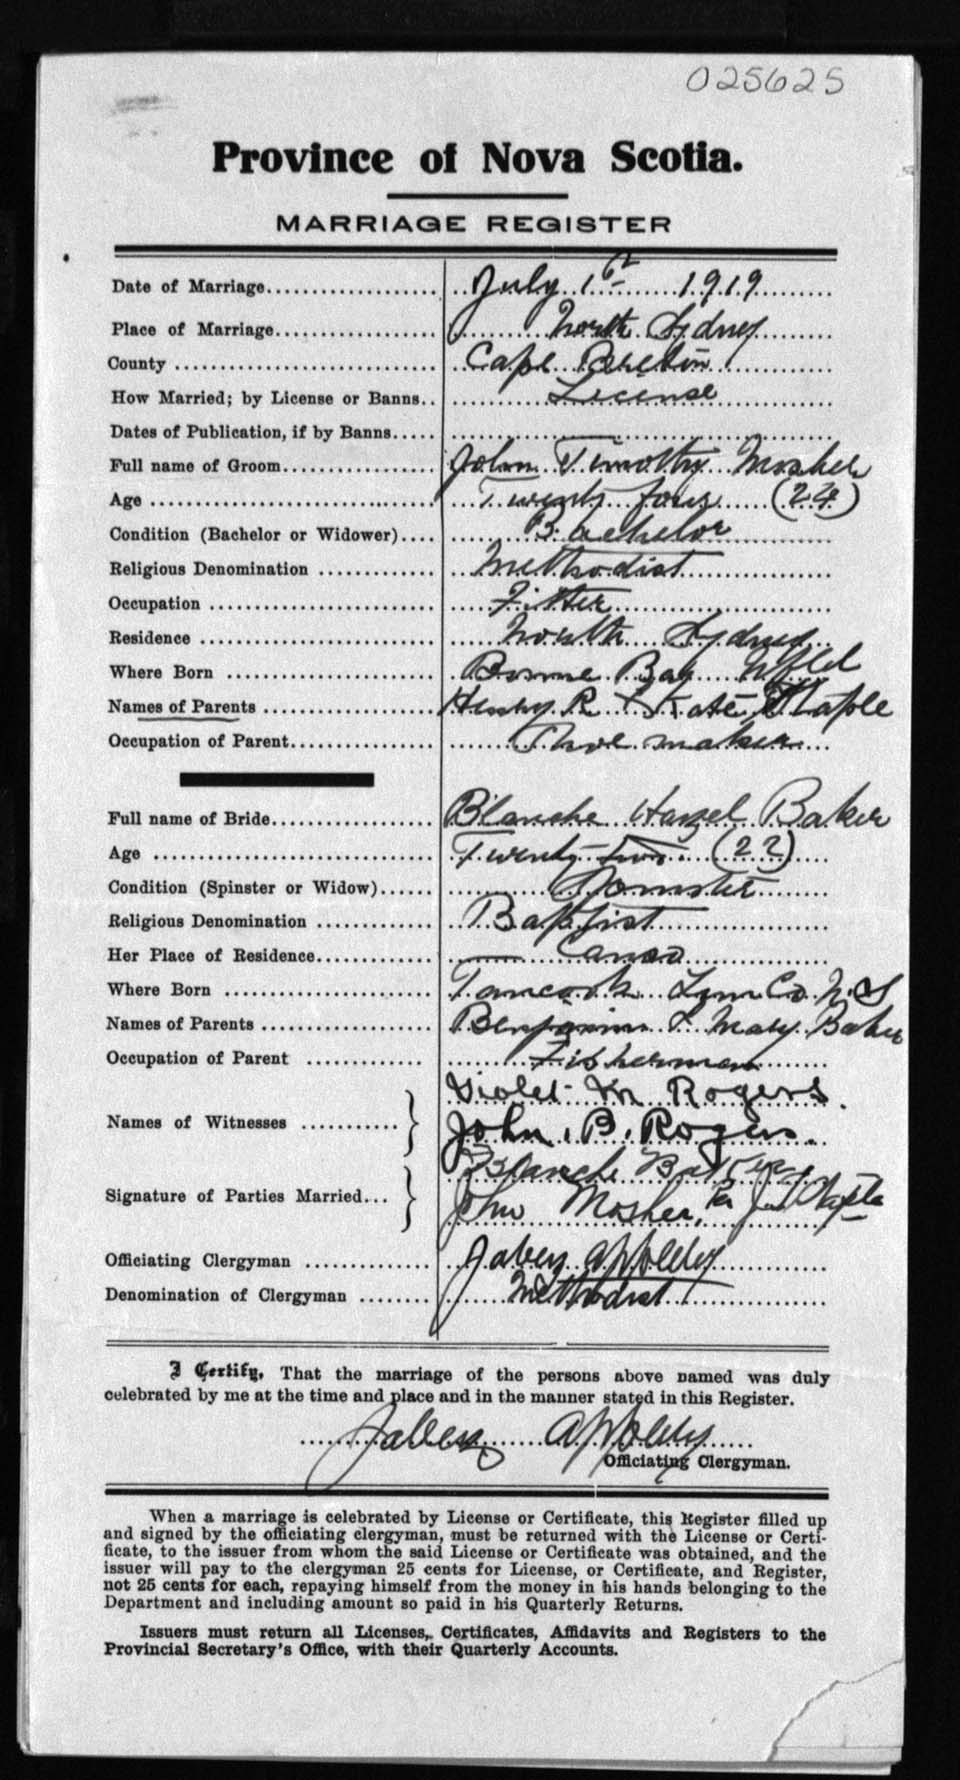 025625
Province of Nova Scotia.
MARRIAGE REGISTER
Date of Marriage July 1st 1919
Place of Marriage North Sydney
County Cape Breton
How Married; by License or Banns.. License
Dates of Publication, if by Banns
Full name of Groom John Timothy Mosher
Age Twenty four (24)
Condition (Bachelor or Widower) Bachelor
Religious Denomination Methodist
Occupation Fitter
Residence North Sydney
Where Born Bonne Bay Nfld
Names of Parents Henry R & Kate
Occupation of Parent Shoe maker
Full name of Bride Blanche Hazel Baker
Age Twenty two (22)
Condition (Spinster or Widow) Spinster
Religious Denomination Baptist
Her Place of Residence Canso
Where Born Tancook Lun Co N.S
Names of Parents Benjamin & Mary Baker
Occupation of Parent Fisherman
Names of Witnesses Violet M Rogers.
John. B. Rogers.
Signature of Parties Married... Blanche Baker
John Mosher, Per
Officiating Clergyman Jabez Appleby
Denomination of Clergyman Methodist
I Certify, That the marriage of the persons above named was duly
celebrated by me at the time and place and in the manner stated in this Register.
Jabez Appleby
Officiating Clergyman.
When a marriage is celebrated by License or Certificate, this Register filled up
and signed by the officiating clergyman, must be returned with the License or Certi-
ficate, to the issuer from whom the said License or Certificate was obtained, and the
issuer will pay to the clergyman 25 cents for License, or Certificate, and Register,
not 25 cents for each, repaying himself from the money in his hands belonging to the
Department and including amount so paid in his Quarterly Returns.
Issuers must return all Licenses, Certificates, Affidavits and Registers to the
Provincial Secretary's Office, with their Quarterly Accounts.